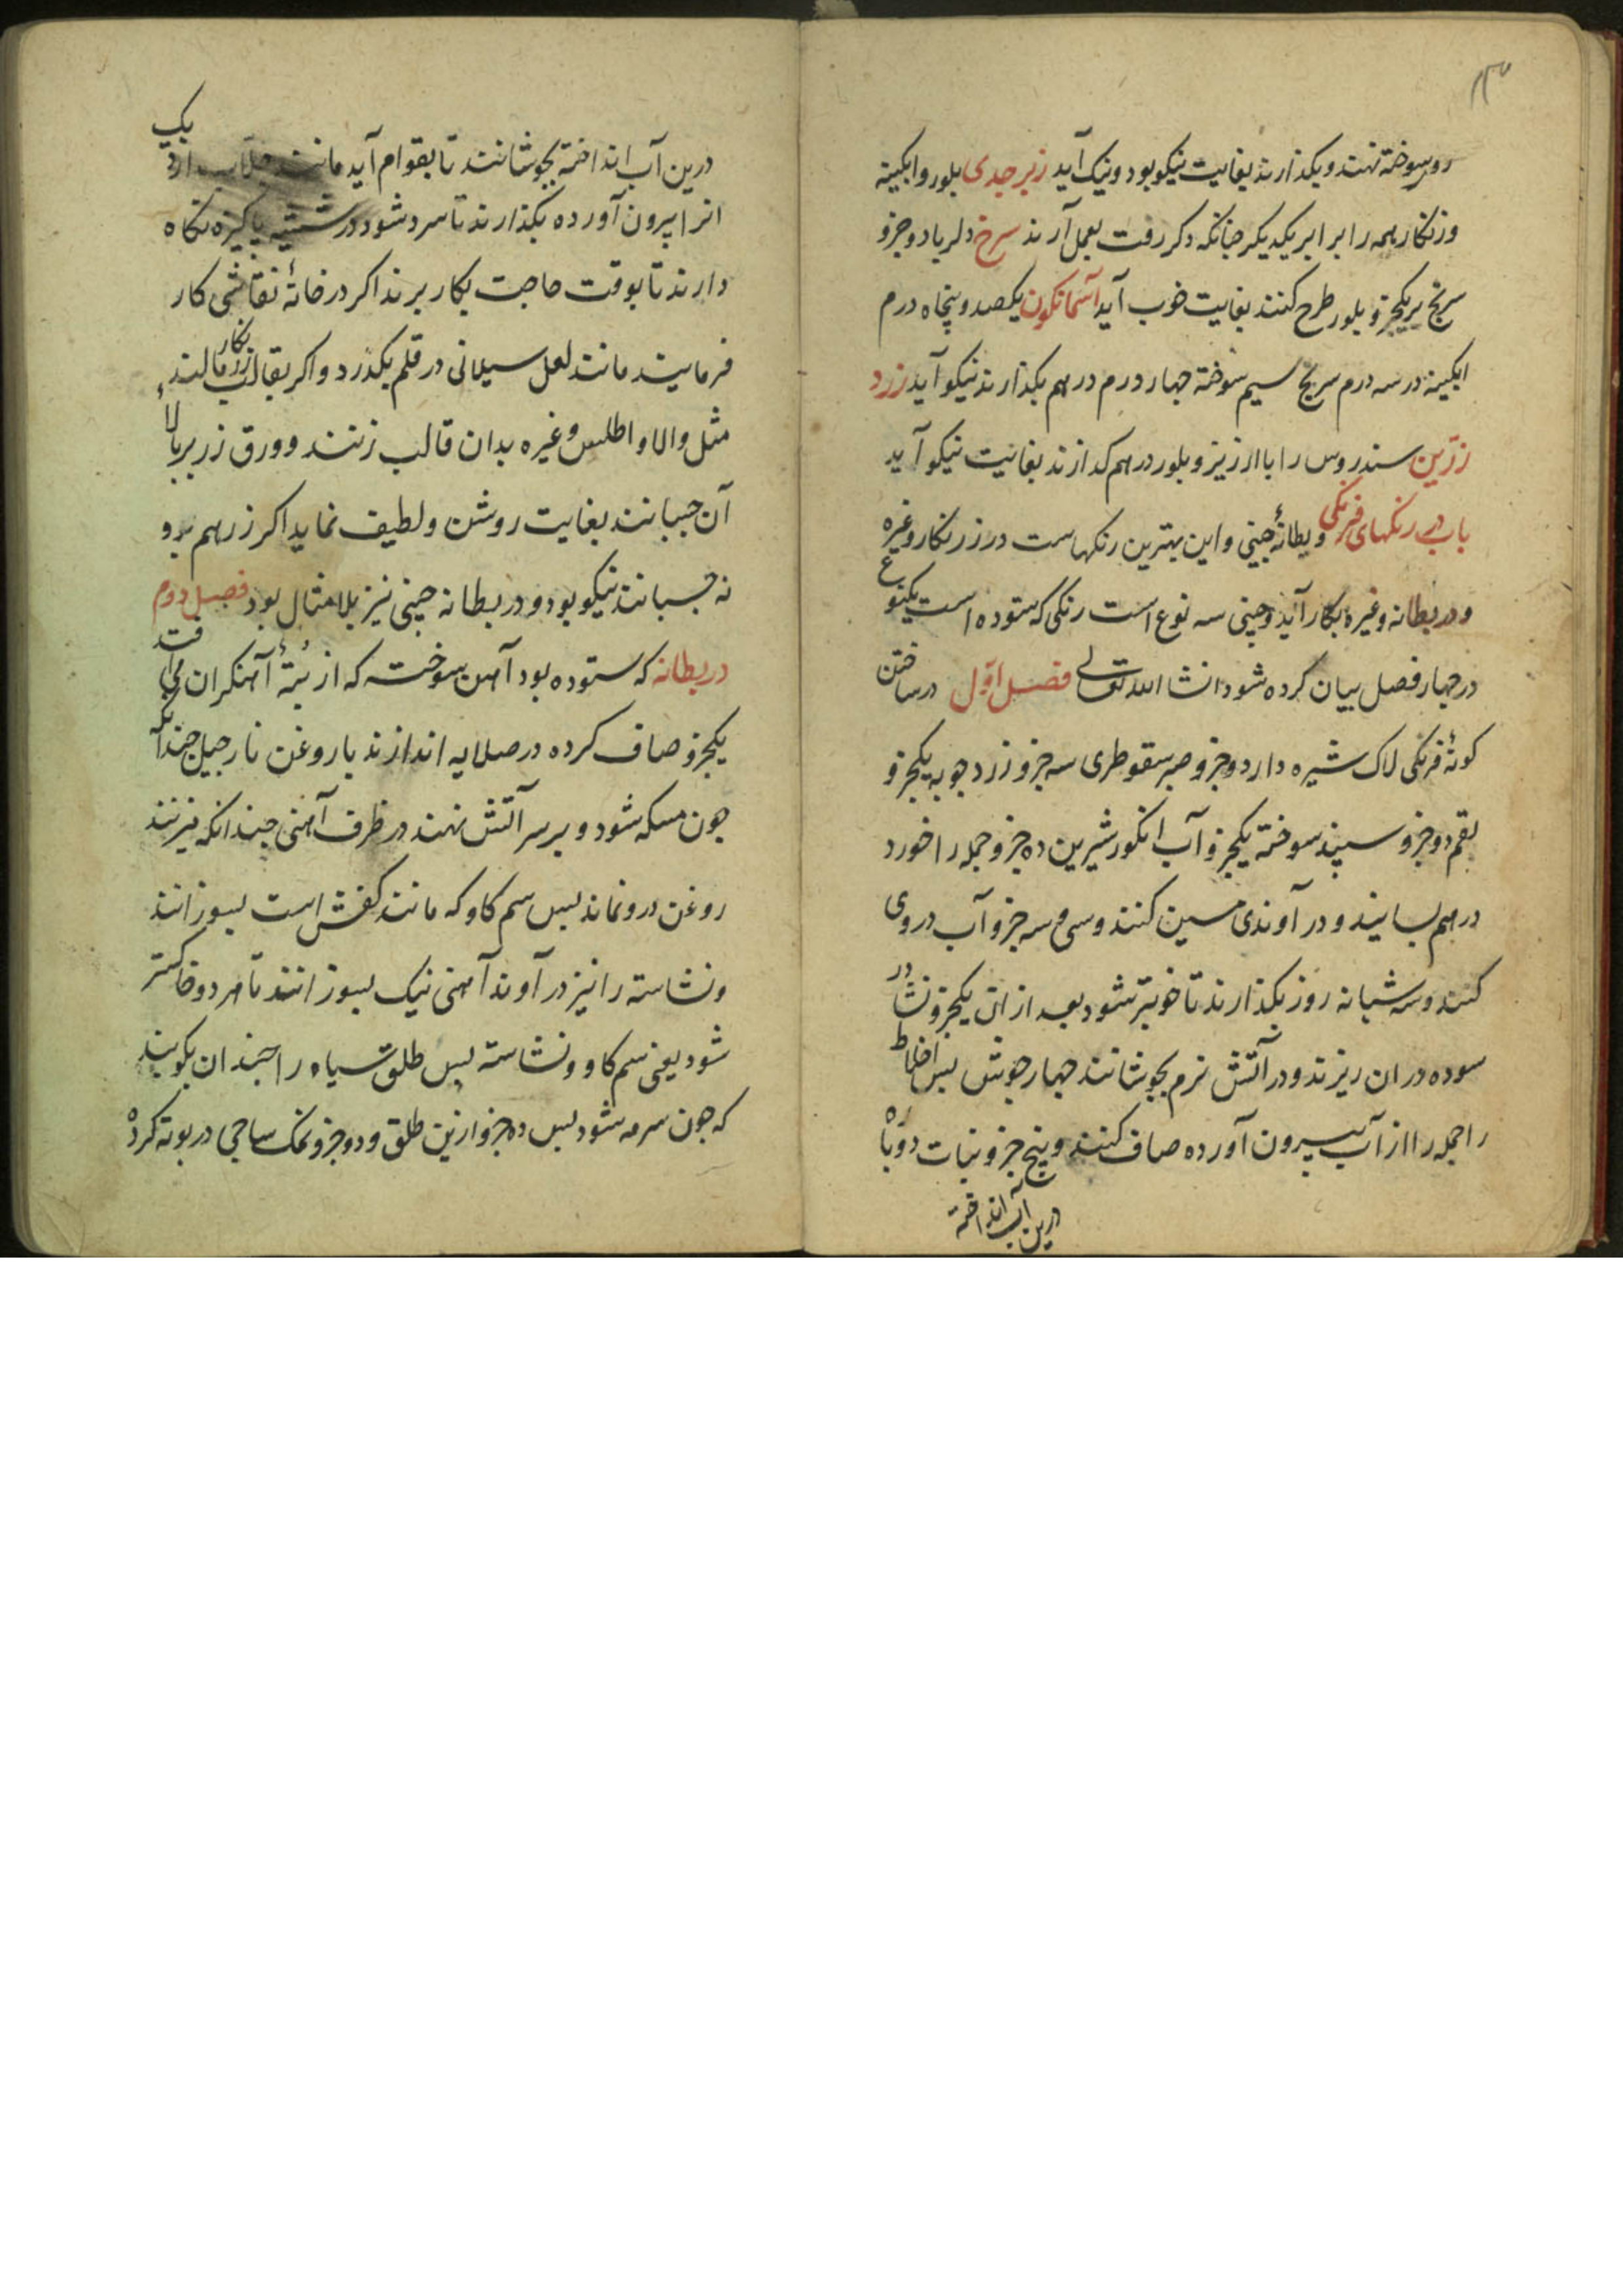 ۱۳
روسوخته نهند و بکذارند بغایت نیکو بود و نیک آید زبرجدی بلور و ابکینه
وزنکار همه را برابر یکدیکر چنانکه ذکر رفت بعمل آرند سرخ دلربا دو جزو
سرنج بریکجزو بلور طرح کنند بغایت خوب آید آسمانکون یکصد و پنجاه درم
ابکینه در سه درم سرنج سیم سوخته چهار درم درهم بکذارند نیکو آید زرد
زرین سندروس را با ارزیز و بلور درهم کدازند بغایت نیکو آید
باب در رنکهای فرنکی و بطانهٔ چینی و این بهترین رنکهاست در زرنکار و غیره
و در بطانه و غیره بکار آید و چینی سه نوع است رنکی که ستوده است یکنوع
در چهار فصل بیان کرده شود انشا الله تعالی فصل اول در ساختن
کونهٔ فرنکی لاک شیره دار دو جزو صبر سقوطری سه جزو زرد چوبه یکجزو
بقم دو جزو سپند سوخته یکجزو آب انکور شیرین ده جزو جمله را خورد
درهم بسایند و در آوندی مسین کنند و سی و سه جزو آب دروی
کنند و سه شبانه روز بکذارند تا خوبتر شود بعد از ان یکجزو نشادر
سوده در ان ریزند و در آتش نرم بجوشانند چهار جوش پس اخلاط
را جمله را از آب بیرون آورده صاف کنند و پنج جزو نبات دوباره
درین آب انداخته
درین آب انداخته بجوشانند تا بقوام آید مانند جلاب دارد یک
انرا بیرون آورده بکذارند تا سرد شود در شیشه پاکیزه نکاه
دارند تا بوقت حاجت بکار برند اکر در خانهٔ نقاشی کار
فرمایند مانند لعل سیلانی در قلم بکذرد و اکر بقالب زرنکار مالند
مثل والا و اطلس و غیره بدان قالب زنند و ورق زر بر بالاء
آن چسبانند بغایت روشن و لطیف نماید اکر زر هم برو
نه چسبانند نیکو بود و در بطانه چینی نیز بلا مثال بود فصل دوم
در بطانه که ستوده بود آهن سوخته که از بتهٔ آهنکران می افتد
یکجزو صاف کرده در صلایه اندازند با روغن نارجیل چندانکه
چون مسکه شود و بر سر آتش نهند در ظرف آهنی چندانکه نیز نند
روغن درو نماند پس سم کاو که مانند کفش است بسوزانند
و نشاسته را نیز در آوند آهنی نیک بسوزانند تا هر دو خاکستر
شود یعنی سم کاو و نشاسته پس طلق سیاه را چندان بکوبند
که چون سرمه شود پس ده جزو ازین طلق و دو جزو نمک ساجی در بوته کرده